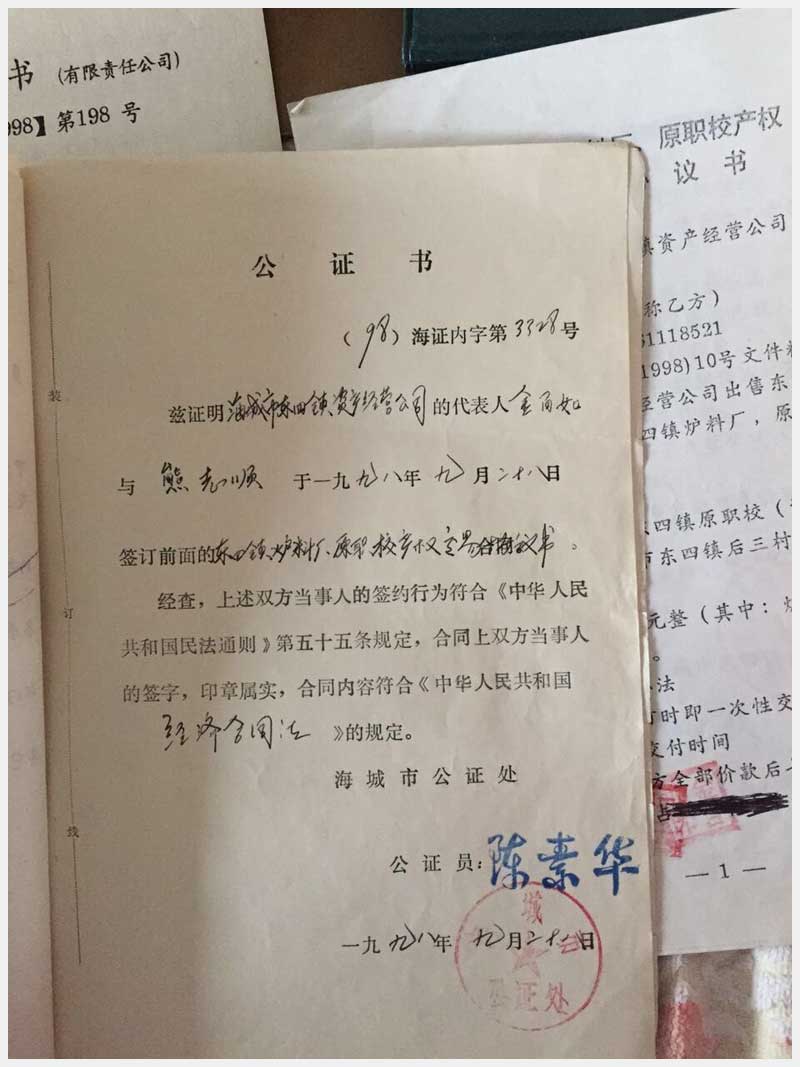 书 (有限责任公司)
998】第198 号
原职校产权
议 书
镇资产经营公司
称乙方)
61118521
1998)10号文件
经营公司出售东
四镇炉料厂，原
东四镇原职校（
市东四镇后三村
元整（其中：
。
办法
订时即一次性交
交付时间
方全部价款后
占
— 1 —
公 证 书
（98）海证内字第3328号
兹证明海城市东四镇资产经营公司的代表人金百如
与 熊志顺 于一九九八年九月二十八日
签订前面的东四镇炉料厂、原职校产权交易合同协议书。
经查，上述双方当事人的签约行为符合《中华人民
共和国民法通则》第五十五条规定，合同上双方当事人
的签字，印章属实，合同内容符合《中华人民共和国
经济合同法 》的规定。
海城市公证处
公 证 员：陈素华
一九九八年九月二十八日
城
公证处
装
订
线